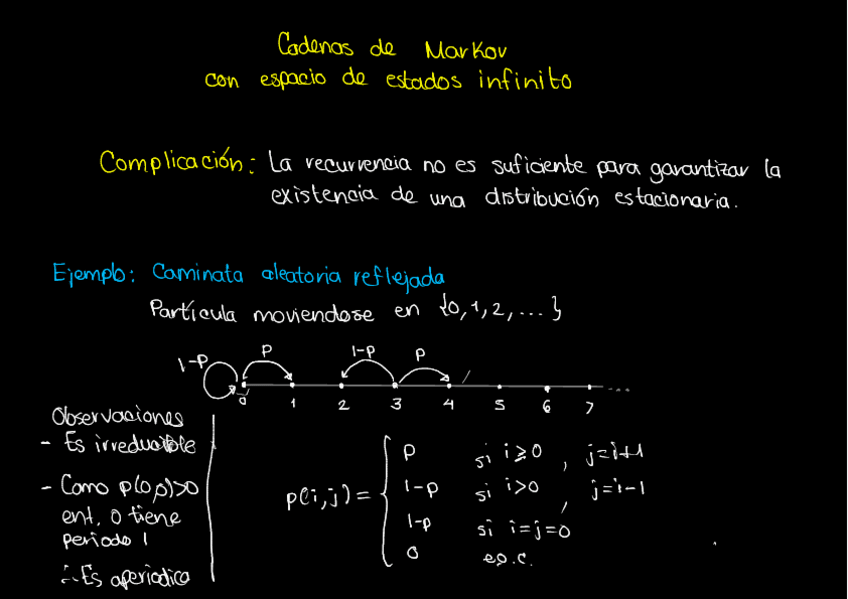 Cadenas de Markov
con espacio de estados infinito
Complicación: La recurrencia no es suficiente para garantizar la
existencia de una distribución estacionaria.
Ejemplo: Caminata aleatoria reflejada
Partícula moviendose en {0, 1, 2, ... }
1-p p 1-p p
0 1 2 3 4 5 6 7 ...
Observaciones
- Es irreducible
- Como p(0,0)>0
ent. 0 tiene
periodo 1
∴ Es aperiodica
p(i,j) =
p si i≥0, j=i+1
1-p si i>0, j=i-1
1-p si i=j=0
0 e.o.c.